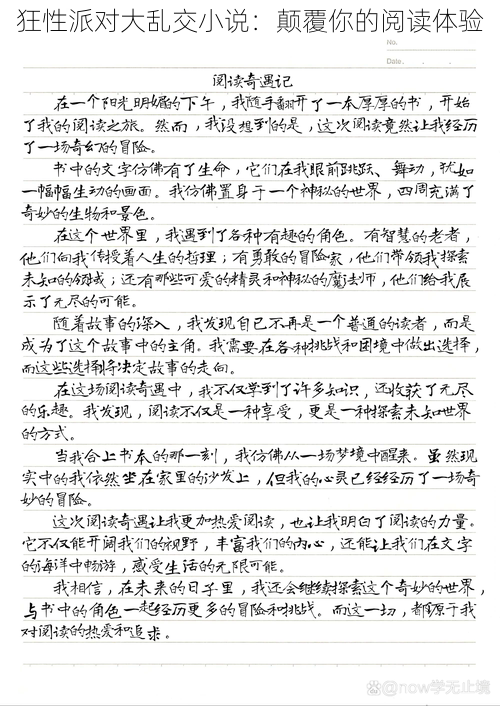 狂性派对大乱交小说：颠覆你的阅读体验
No.
Date
阅读奇遇记
在一个阳光明媚的下午，我随手翻开了一本厚厚的书，开始
了我的阅读之旅。然而，我没想到的是，这次阅读竟然让我经历
了一场奇幻的冒险。
书中的文字仿佛有了生命，它们在我眼前跳跃、舞动，犹如
一幅幅生动的画面。我仿佛置身于一个神秘的世界，四周充满了
奇妙的生物和景色。
在这个世界里，我遇到了各种有趣的角色。有智慧的老者，
他们向我传授着人生的哲理；有勇敢的冒险家，他们带领我探索
未知的领域；还有那些可爱的精灵和神秘的魔法师，他们给我展
示了无尽的可能。
随着故事的深入，我发现自己不再是一个普通的读者，而是
成为了这个故事中的主角。我需要在各种挑战和困境中做出选择，
而这些选择将决定故事的走向。
在这场阅读奇遇中，我不仅学到了许多知识，还收获了无尽
的乐趣。我发现，阅读不仅是一种享受，更是一种探索未知世界
的方式。
当我合上书本的那一刻，我仿佛从一场梦境中醒来。虽然现
实中的我依然坐在家里的沙发上，但我的心灵已经经历了一场奇
妙的冒险。
这次阅读奇遇让我更加热爱阅读，也让我明白了阅读的力量。
它不仅能开阔我们的视野，丰富我们的内心，还能让我们在文字
的海洋中畅游，感受生活的无限可能。
我相信，在未来的日子里，我还会继续探索这个奇妙的世界，
与书中的角色一起经历更多的冒险和挑战。而这一切，都源于我
对阅读的热爱和追求。
@now学无止境